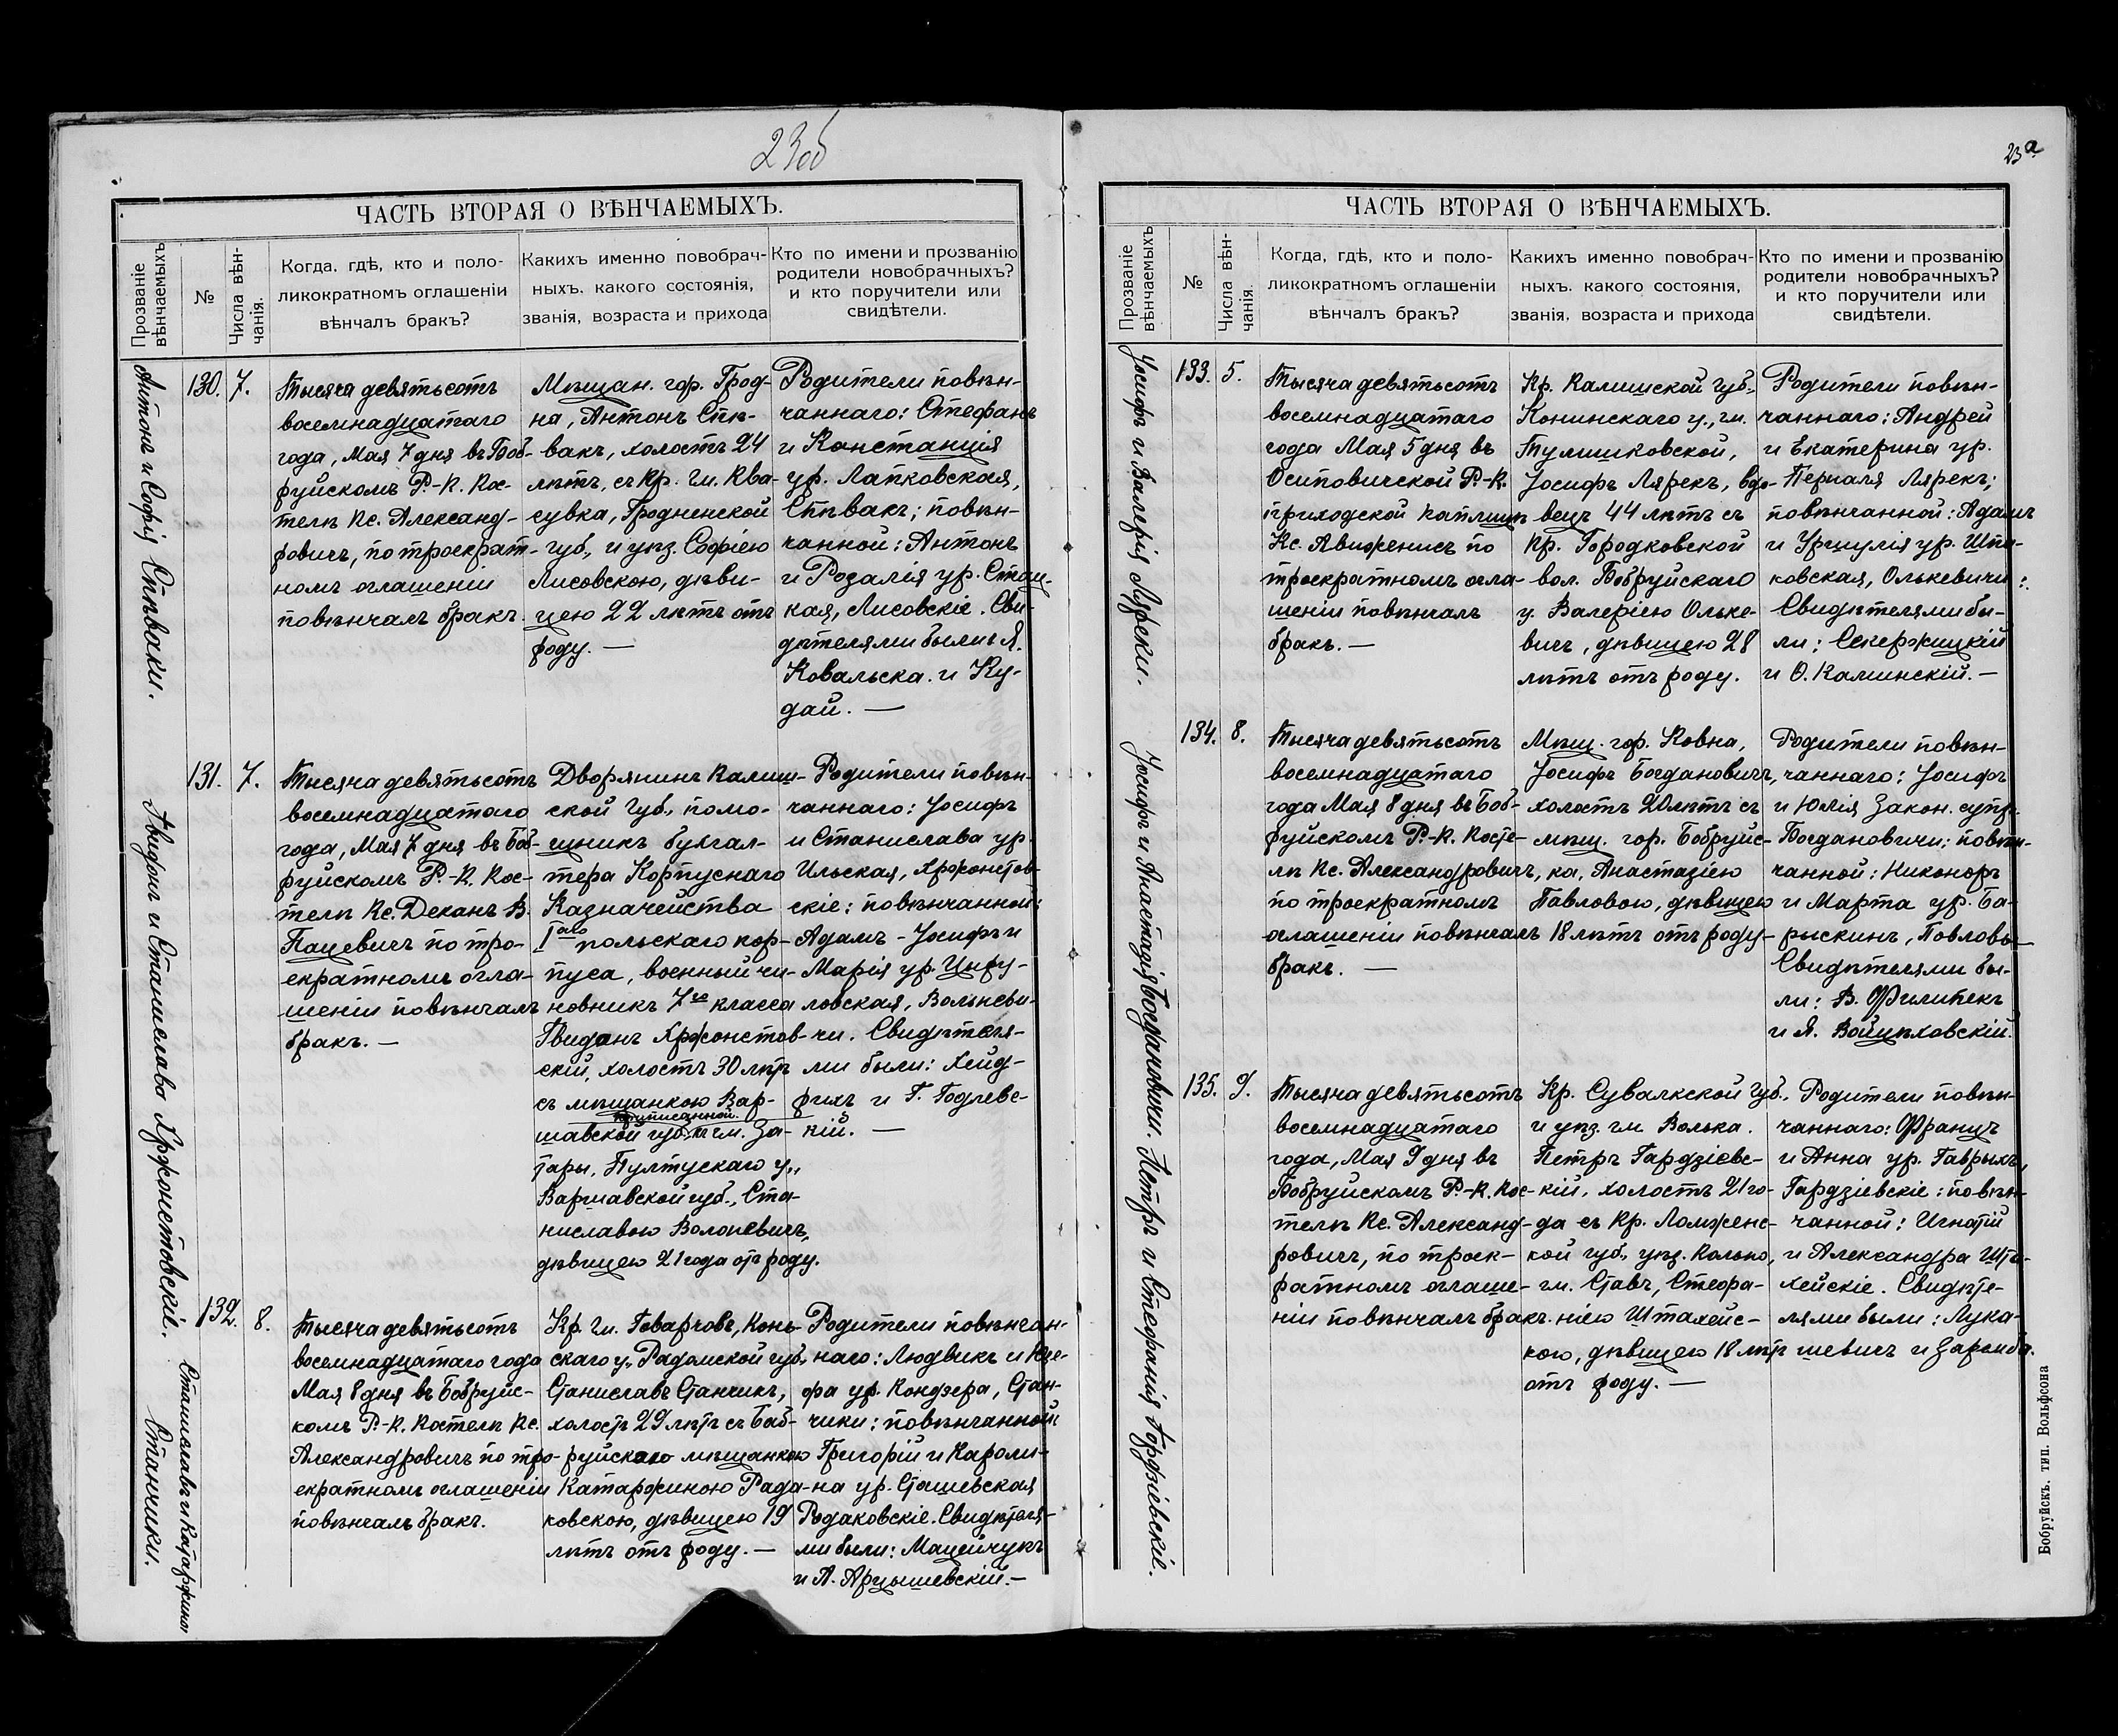 23об
ЧАСТЬ ВТОРАЯ О ВѢНЧАЕМЫХЪ.
Прозваніе вѣнчаемыхъ
№
Числа вѣн-
чанія.
Когда, гдѣ, кто и поло-
ликократномъ оглашеніи
вѣнчалъ бракъ?
Какихъ именно повобрач-
ныхъ. какого состоянія,
званія, возраста и прихода
Кто по имени и прозванію
родители новобрачныхъ?
и кто поручители или
свидѣтели.
Антонъ и Софія Спѣваки.
130.
7.
Тысяча девятьсотъ
восемнадцатаго
года, Мая 7 дня въ Боб-
руйскомъ Р.-К. Кос-
телѣ Кс. Александ-
ровичъ, по троекрат-
номъ оглашеніи
повѣнчалъ бракъ.
Мѣщан. гор. Грод-
на, Антонъ Спѣ-
вакъ, холостъ 24
лѣтъ, съ Кр. гм. Ква-
сувка, Гродненской
губ., и уѣз. Софіею
Лисовскою, дѣви-
цею 22 лѣтъ отъ
роду. —
Родители повѣн-
чаннаго: Стефанъ
и Констанція
ур. Лапковская,
Спѣвакъ; повѣн-
чанной: Антонъ
и Розалія ур. Стац-
кая, Лисовскіе. Сви-
дѣтелями были Я.
Ковальска. и Ку-
дай. —
Гвидонъ и Станислава Хржонстовскіе.
131.
7.
Тысяча девятьсотъ
восемнадцатаго
года, Мая 7 дня въ Боб-
руйскомъ Р.-К. Кос-
телѣ Кс. Деканъ В.
Пацевичъ по тро-
екратномъ огла-
шеніи повѣнчалъ
бракъ. —
Дворянинъ Калиш-
ской губ., помо-
щникъ бухгал-
тера Корпуснаго
Казначейства
I аго польскаго кор-
пуса, военный чи-
новникъ 7го класса
Гвидонъ Хржонстов-
скій, холостъ 30 лѣтъ
съ мѣщанкою Вар-
приписанной
шавской губ. къ гм. За-
торы, Пултускаго у.,
Варшавской губ., Ста-
ниславою Волоневичъ,
дѣвицею 21 года отъ роду.
Родители повѣн-
чаннаго: Іосифъ
и Станислава ур
Ильская, Хржонстов-
скіе; повѣнчанной:
Адамъ - Іосифъ и
Марія ур. Цыру-
ловская, Вольневи-
чи. Свидѣтеля-
ми были: Хейд-
рихъ и Г. Годлевс-
кій. —
Станиславъ и Катаржина Станчики.
132.
8.
Тысяча девятьсотъ
восемнадцатаго года
Мая 8 дня въ Бобруйс-
комъ Р.-К. Костелѣ Кс.
Александровичъ по тро-
екратномъ оглашеніи
повѣнчалъ бракъ.
Кр. гм. Говарчовъ, Конь-
скаго у., Радомской губ.,
Станиславъ Станчикъ,
холостъ 29 лѣтъ съ Боб-
руйскою мѣщанкою
Катаржиною Рада-
ковскою, дѣвицею 19
лѣтъ отъ роду. —
Родители повѣнчан-
наго: Людвикъ и Юзе-
фа ур. Кондзера, Стан-
чики; повѣнчанной:
Григорій и Кароли-
на ур. Сташевская
Родаковскіе. Свидѣтеля-
ми были: Мацейчукъ
и А. Арцышевскій.—
23а
ЧАСТЬ ВТОРАЯ О ВѢНЧАЕМЫХЪ.
Прозваніе вѣнчаемыхъ
№
Числа вѣн-
чанія.
Когда, гдѣ, кто и поло-
ликократномъ оглашеніи
вѣнчалъ бракъ?
Какихъ именно повобрач-
ныхъ. какого состоянія,
званія, возраста и прихода
Кто по имени и прозванію
родители новобрачныхъ?
и кто поручители или
свидѣтели.
Іосифъ и Валерія Ляреки.
133.
5.
Тысяча девятьсотъ
восемнадцатаго
года Мая 5 дня въ
Осиповичской Р.-К.
приходской каплицѣ
Кс. Авиженисъ по
троекратномъ огла-
шеніи повѣнчалъ
бракъ. —
Кр. Калишской губ.,
Конинскаго у., гм.
Тулишковской,
Іосифъ Лярекъ, вдо-
вецъ 44 лѣтъ съ
кр. Городковской
вол. Бобруйскаго
у. Валеріею Ольке-
вичъ, дѣвицею 28
лѣтъ отъ роду.
Родители повѣн-
чаннаго: Андрей
и Екатерина ур.
Перналя Лярекъ;
повѣнчанной: Адамъ
и Урщулія ур. Шпа-
ковская, Олькевичи:
Свидѣтелями бы-
ли: Секержицкій
и О. Калинскій. —
Іосифъ и Анастазія Богдановичи.
134.
8.
Тысяча девятьсотъ
восемнадцатаго
года Мая 8 дня въ Боб-
руйскомъ Р.-К. Косте-
лѣ Кс. Александровичъ,
по троекратномъ
оглашеніи повѣнчалъ
бракъ. —
Мѣщ. гор. Ковна,
Іосифъ Богдановичъ,
холостъ 20 лѣтъ съ
мѣщ. гор. Бобруйс-
ка, Анастазіею
Павловою, дѣвицею
18 лѣтъ отъ роду—
Родители повѣн-
чаннаго: Іосифъ
и Юлія закон. супр.
Богдановичи; повѣн-
чанной: Никоноръ
и Марта ур. Ба-
рыскинъ, Повловы
Свидѣтелями бы-
ли: В. Филипекъ
и Я. Войцѣховскій.
Петръ и Стефанія Гордзіевскіе.
135.
9.
Тысяча девятьсотъ
восемнадцатаго
года, Мая 9 дня въ
Бобруйскомъ Р.-К. Кос-
телѣ Кс. Александ-
ровичъ, по троек-
ратномъ оглаше-
ніи повѣнчалъ бракъ.
Кр. Сувалкской губ.,
и уѣз. гм Волька.
Петръ Гардзіевс-
кій, холостъ 21 го-
да съ кр. Ломженс-
кой губ., уѣз. Кольно,
гм. Ставъ, Стефа-
ніею Штахейс-
кою, дѣвицею 18 лѣтъ
отъ роду. —
Родители повѣн-
чаннаго: Францъ
и Анна ур. Гаврыхъ,
Гардзіевскіе; повѣн-
чанной: Игнатій
и Александра Шта-
хейскіе. Свидѣте-
лями были: Лука-
шевичъ и Заремба.
Бобруйскъ. тип. Вольфсона